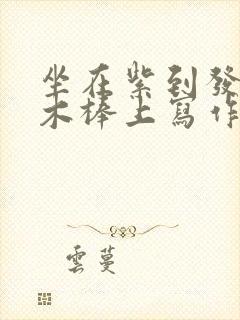 坐在紫到發
木棒上寫作
雲蔓